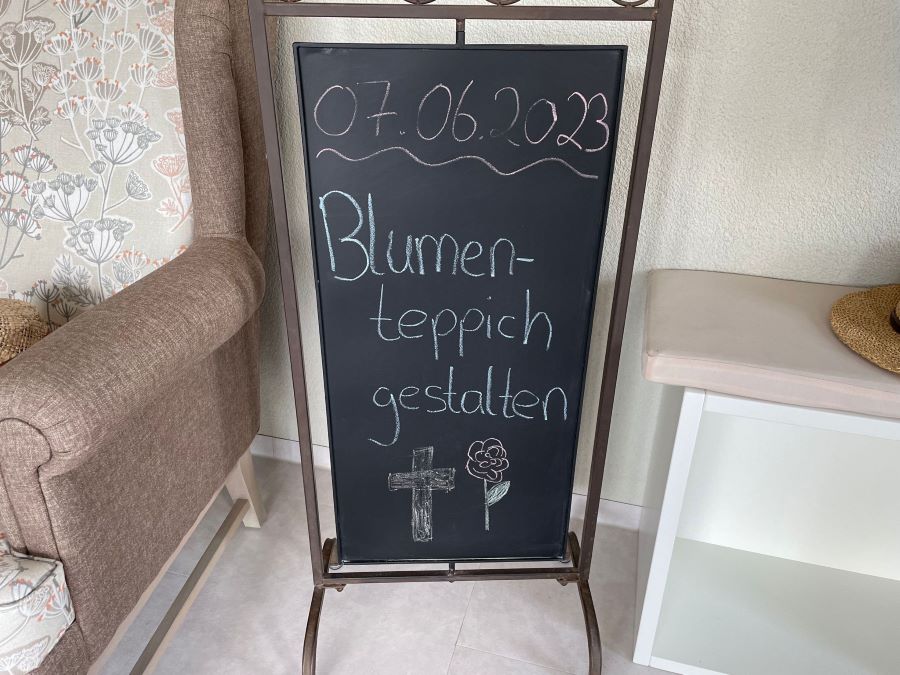 07.06.2023
Blumen-
teppich
gestalten